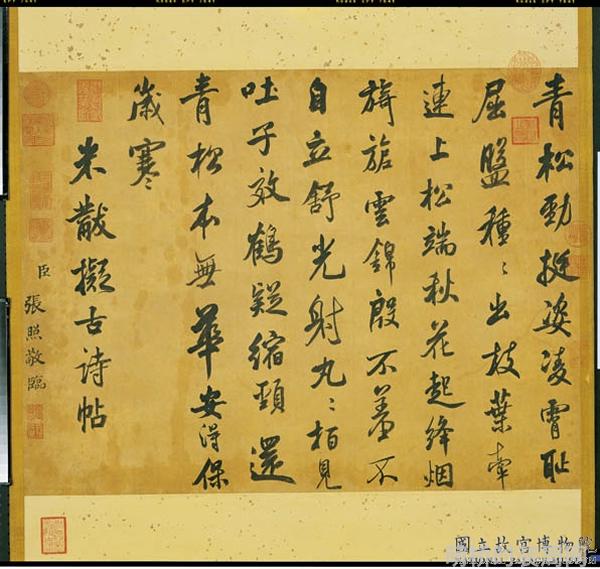 青松勁挺姿凌霄耻
屈盤種〻出枝葉牽
連上松端秋花起絳烟
旖旎雲錦殷不羞不
自立舒光射丸〻柏見
吐子效鶴疑縮頸還
青松本無華安得保
歲寒
米黻擬古詩帖
臣張照敬臨
國立故宮博物院